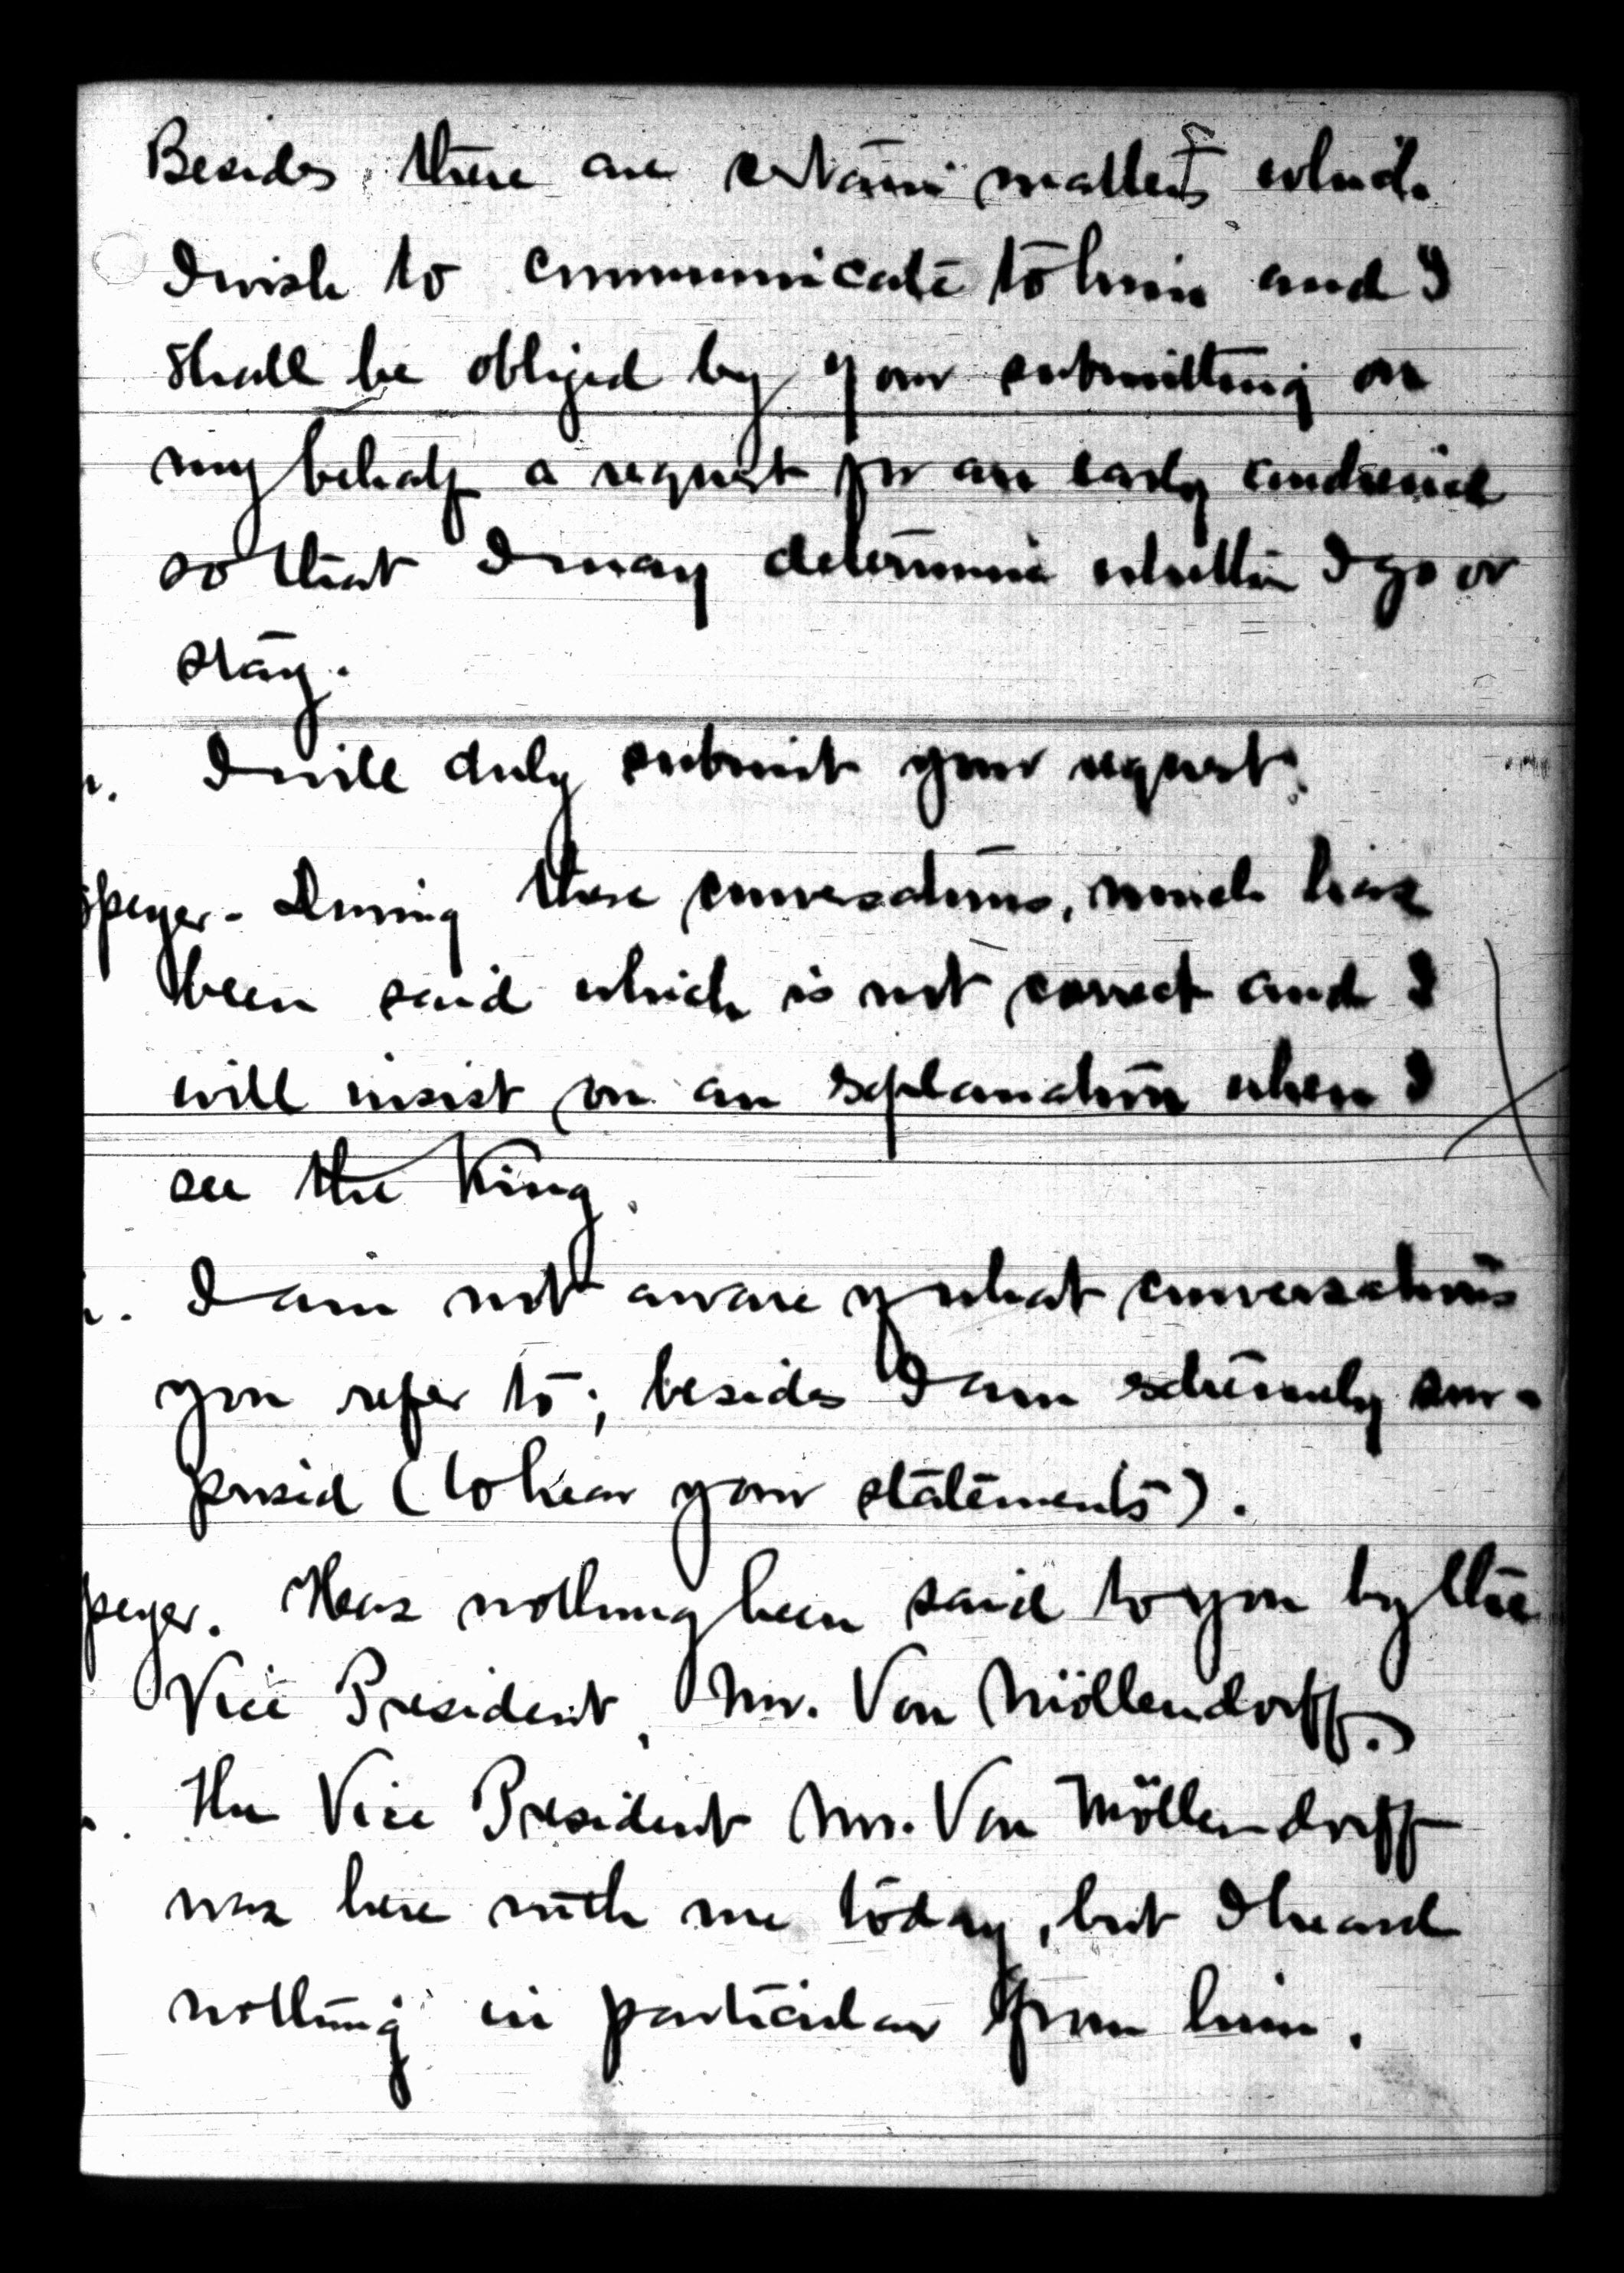 Besides, there are certain matters which
I wish to communicate to him and I
shall be obliged by your submitting on
my behalf a request for an early audience
so that I may determine whether I go or
stay.
I will duly submit your request.
Speyer - During these conversations, much has
been said which is not correct and I
will insist on an explanation when I
see the King.
I am not aware of what conversations
you refer to; besides I am extremely sur-
prised (to hear your statements).
peyer. Has nothing been said to you by the
Vice President, Mr. Von Möllendorff.
The Vice President Mr. Von Möllendorff
was here with me today, but I heard
nothing in particular from him.